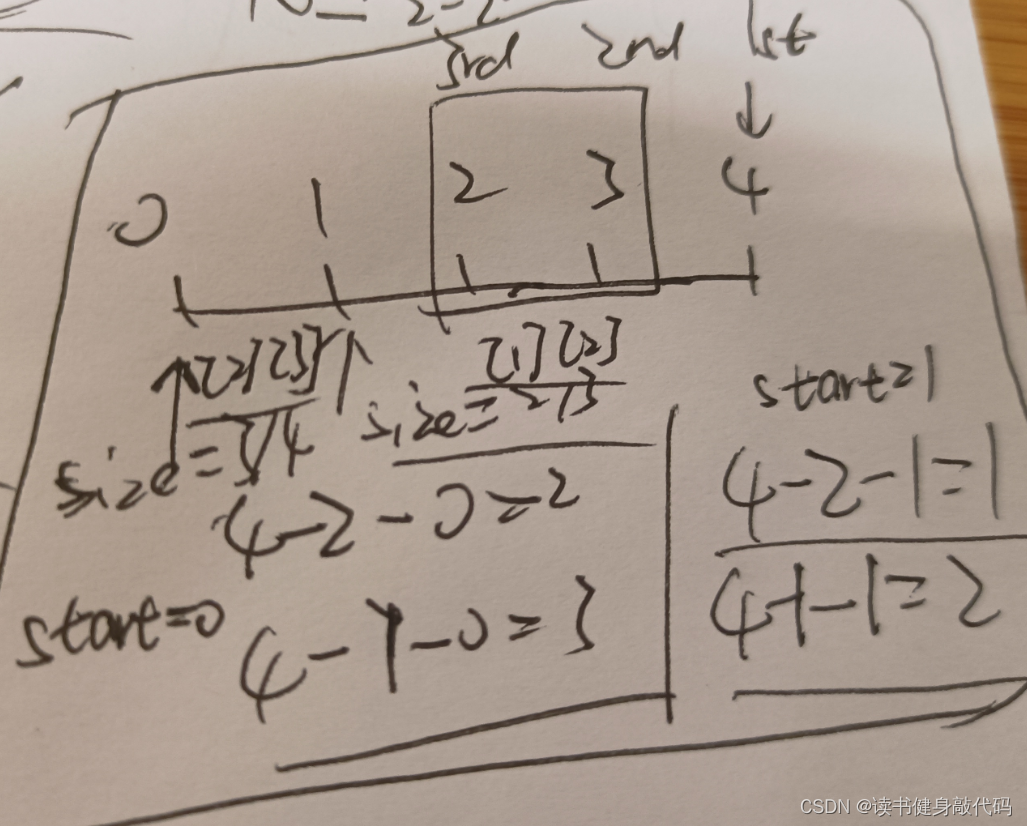 2-2
3rd 2nd 1st
↓
0 1 2 3 4
[2] [3] [1] [2]
size=3/4 size=2/3
start=1
4-2-0=2 4-2-1=1
start=0 4-1-0=3 4-1-1=2
CSDN @读书健身敲代码